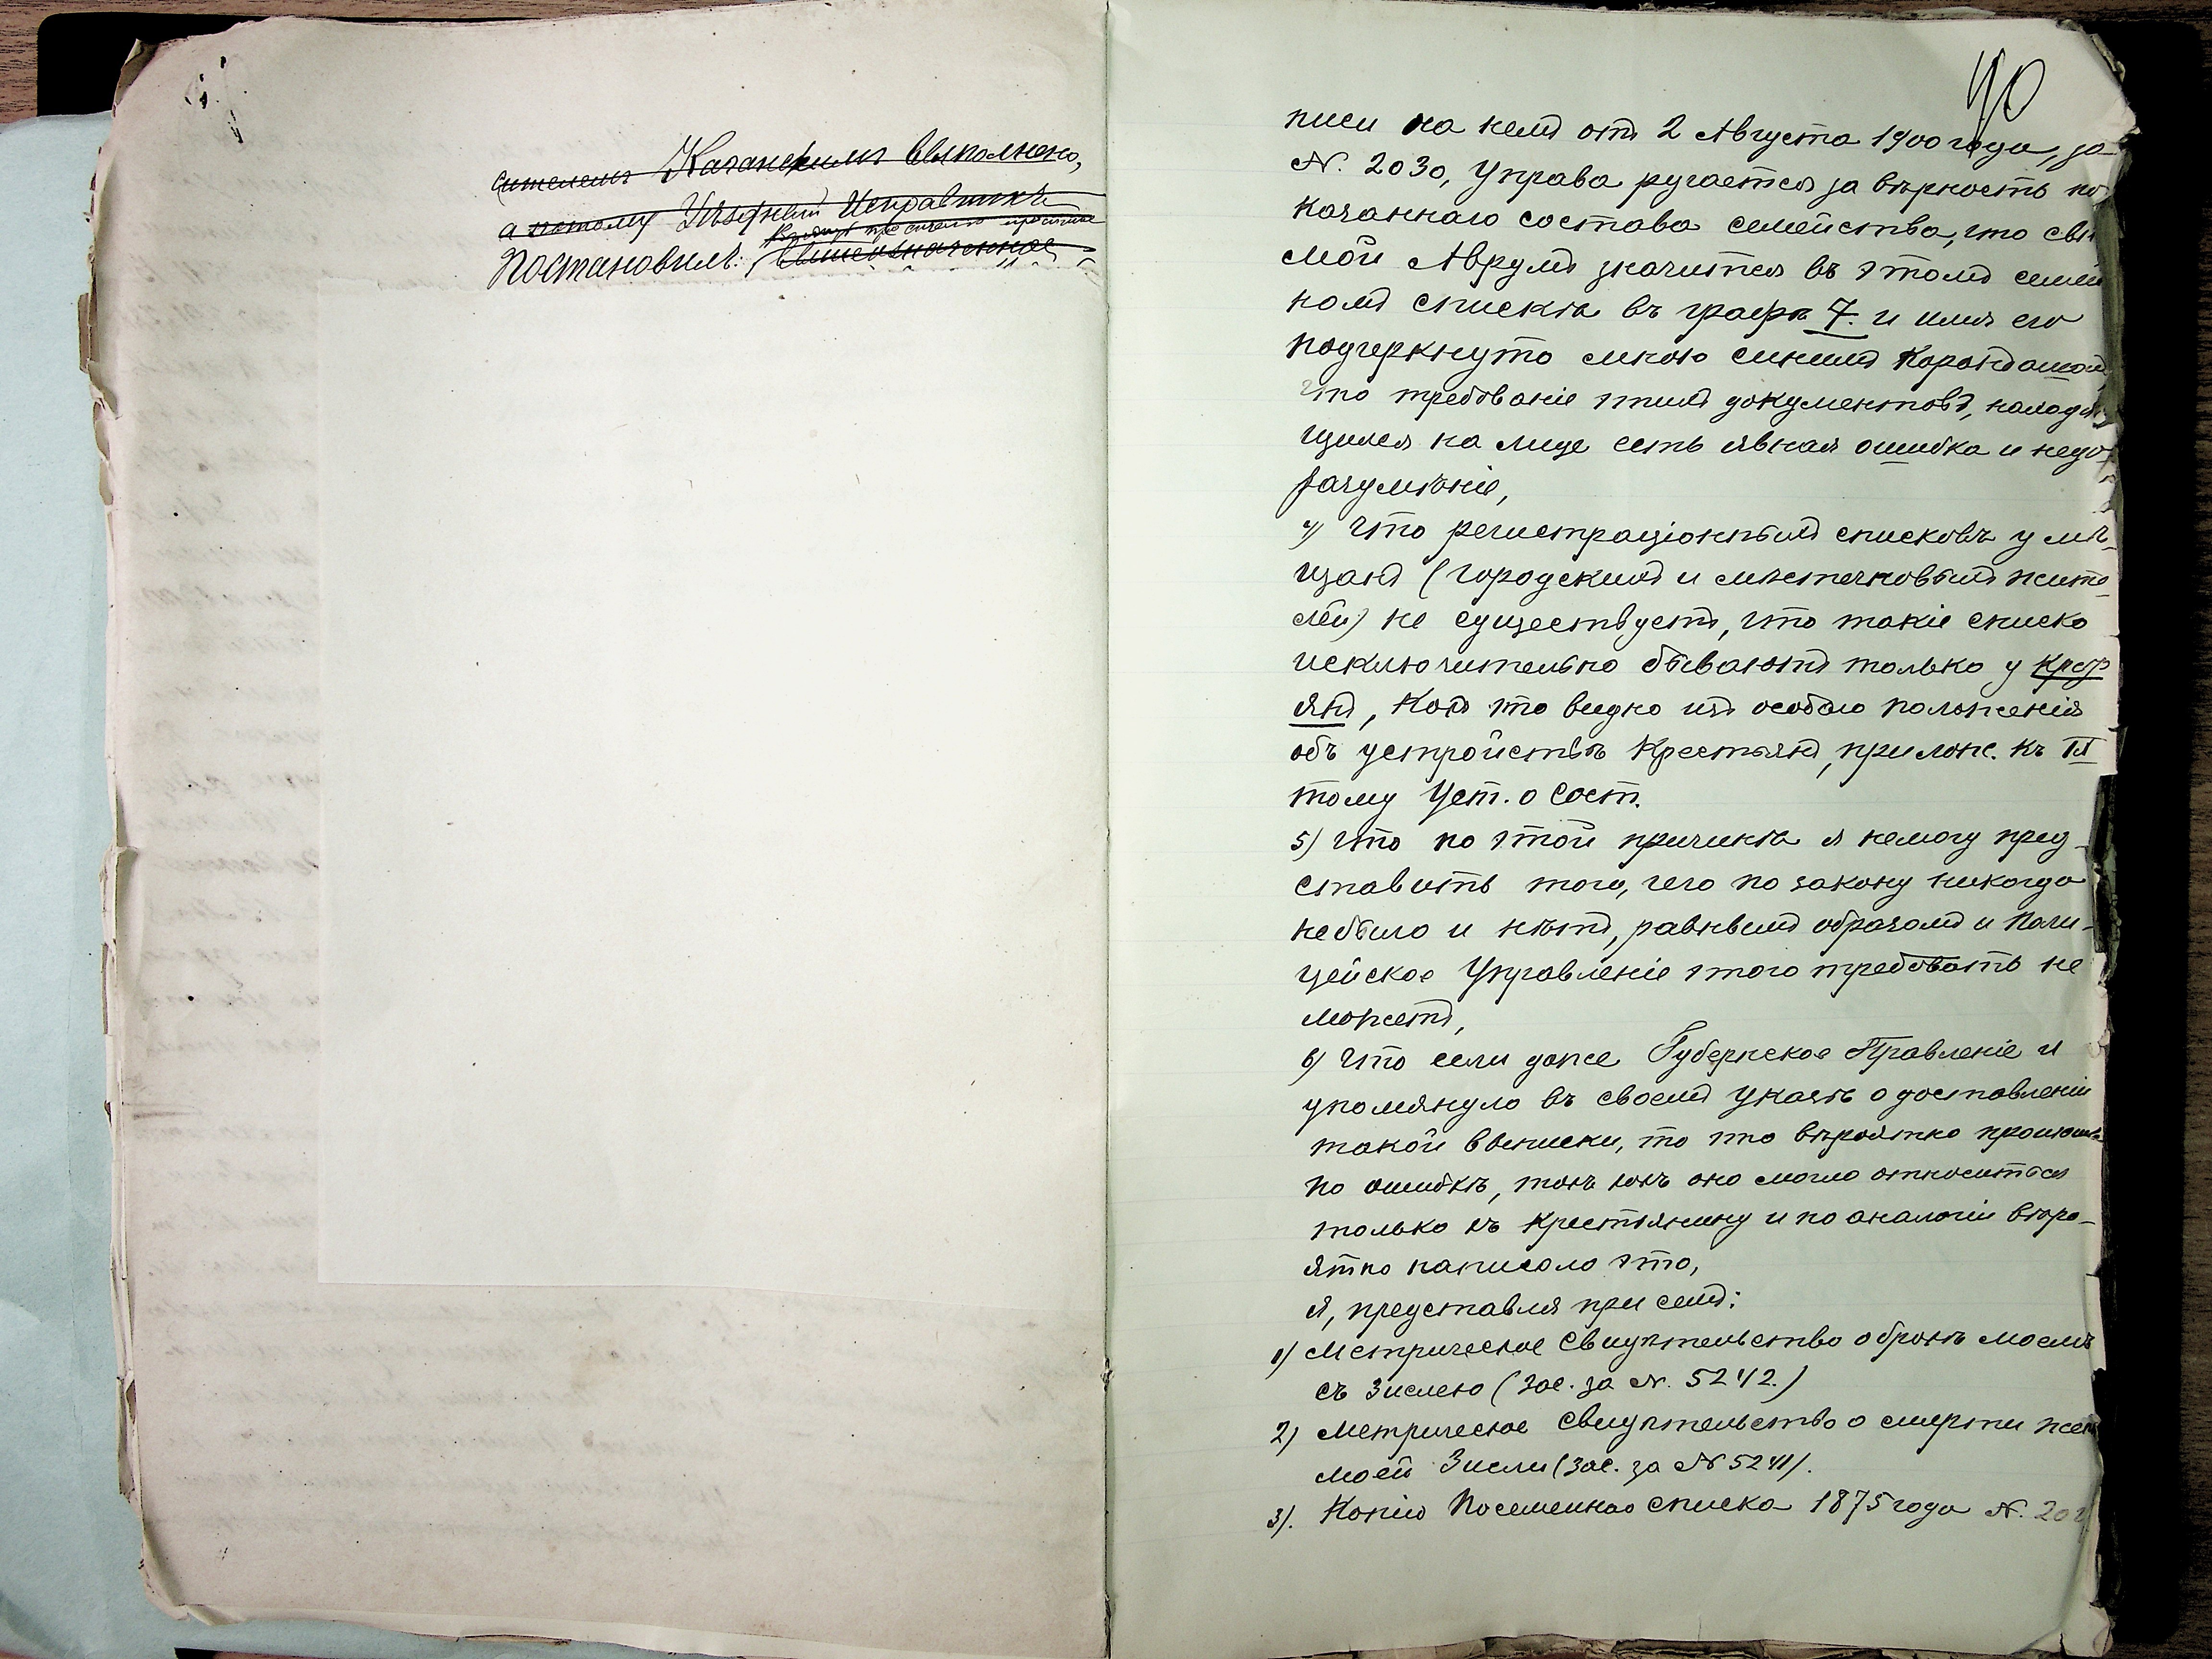 сителемъ Казанскимъ выполнено,
а потому Уѣздный Исправникъ
Постановилъ: вышеозначенное
40
писи на немъ отъ 2 Августа 1900 года, за
N. 2030, Управа ручается за вѣрность по
казаннаго состава семейства, что сынъ
мой Аврумъ значится въ этомъ семей
номъ спискѣ въ графѣ 7. и имя его
подчеркнуто мною синимъ Карандашомъ,
что требованіе этихъ документовъ, находя
щихся на лице есть явная ошибка и недо-
разумѣніе,
4) Что регистраціонныхъ списковъ у мѣ-
щанъ (городскихъ и мѣстечковыхъ жите-
лей) не существуетъ, что такіе списко
исключительно бываютъ только у Крест
янъ, Какъ это видно изъ особаго положенія
объ устройствѣ Крестьянъ, прилож. къ IX
тому Уст. о Сост.
5) Что по этой причинѣ я немогу пред-
ставить того, чего по закону никогда
небыло и нѣтъ, равнымъ образомъ и Поли-
цейское Управленіе этого требовать не
можетъ,
6) Что если даже Губернское Правленіе и
упомянуло въ своемъ Указѣ о доставленіи
такой выписки, то это вѣроятно произошло
по ошибкѣ, такъ какъ оно могло относиться
только къ Крестьянину и по аналогіи вѣро-
ятно написало это,
я, представляя при семъ:
1) Метрическое Свидѣтельство о бракѣ моемъ
съ Зислею (Зас. за N. 5242.)
2) Метрическое Свидѣтельство о смерти жены
моей Зисли (Зас. за N 5241).
3). Копію Посемейнаго списка 1875 года N.